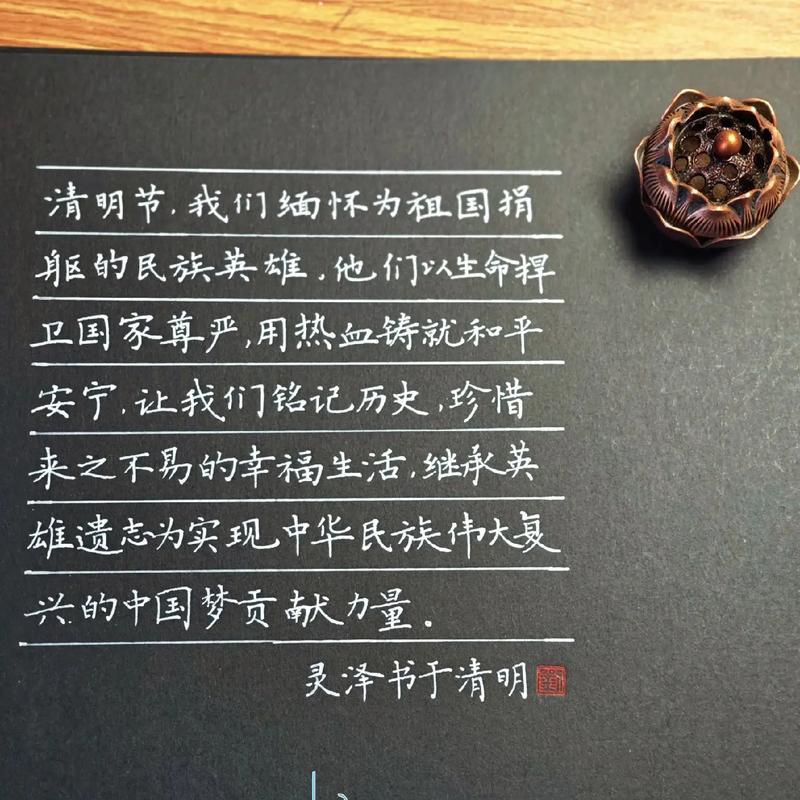 清明节,我们缅怀为祖国捐
躯的民族英雄,他们以生命捍
卫国家尊严,用热血铸就和平
安宁,让我们铭记历史,珍惜
来之不易的幸福生活,继承英
雄遗志为实现中华民族伟大复
兴的中国梦贡献力量.
灵泽书于清明